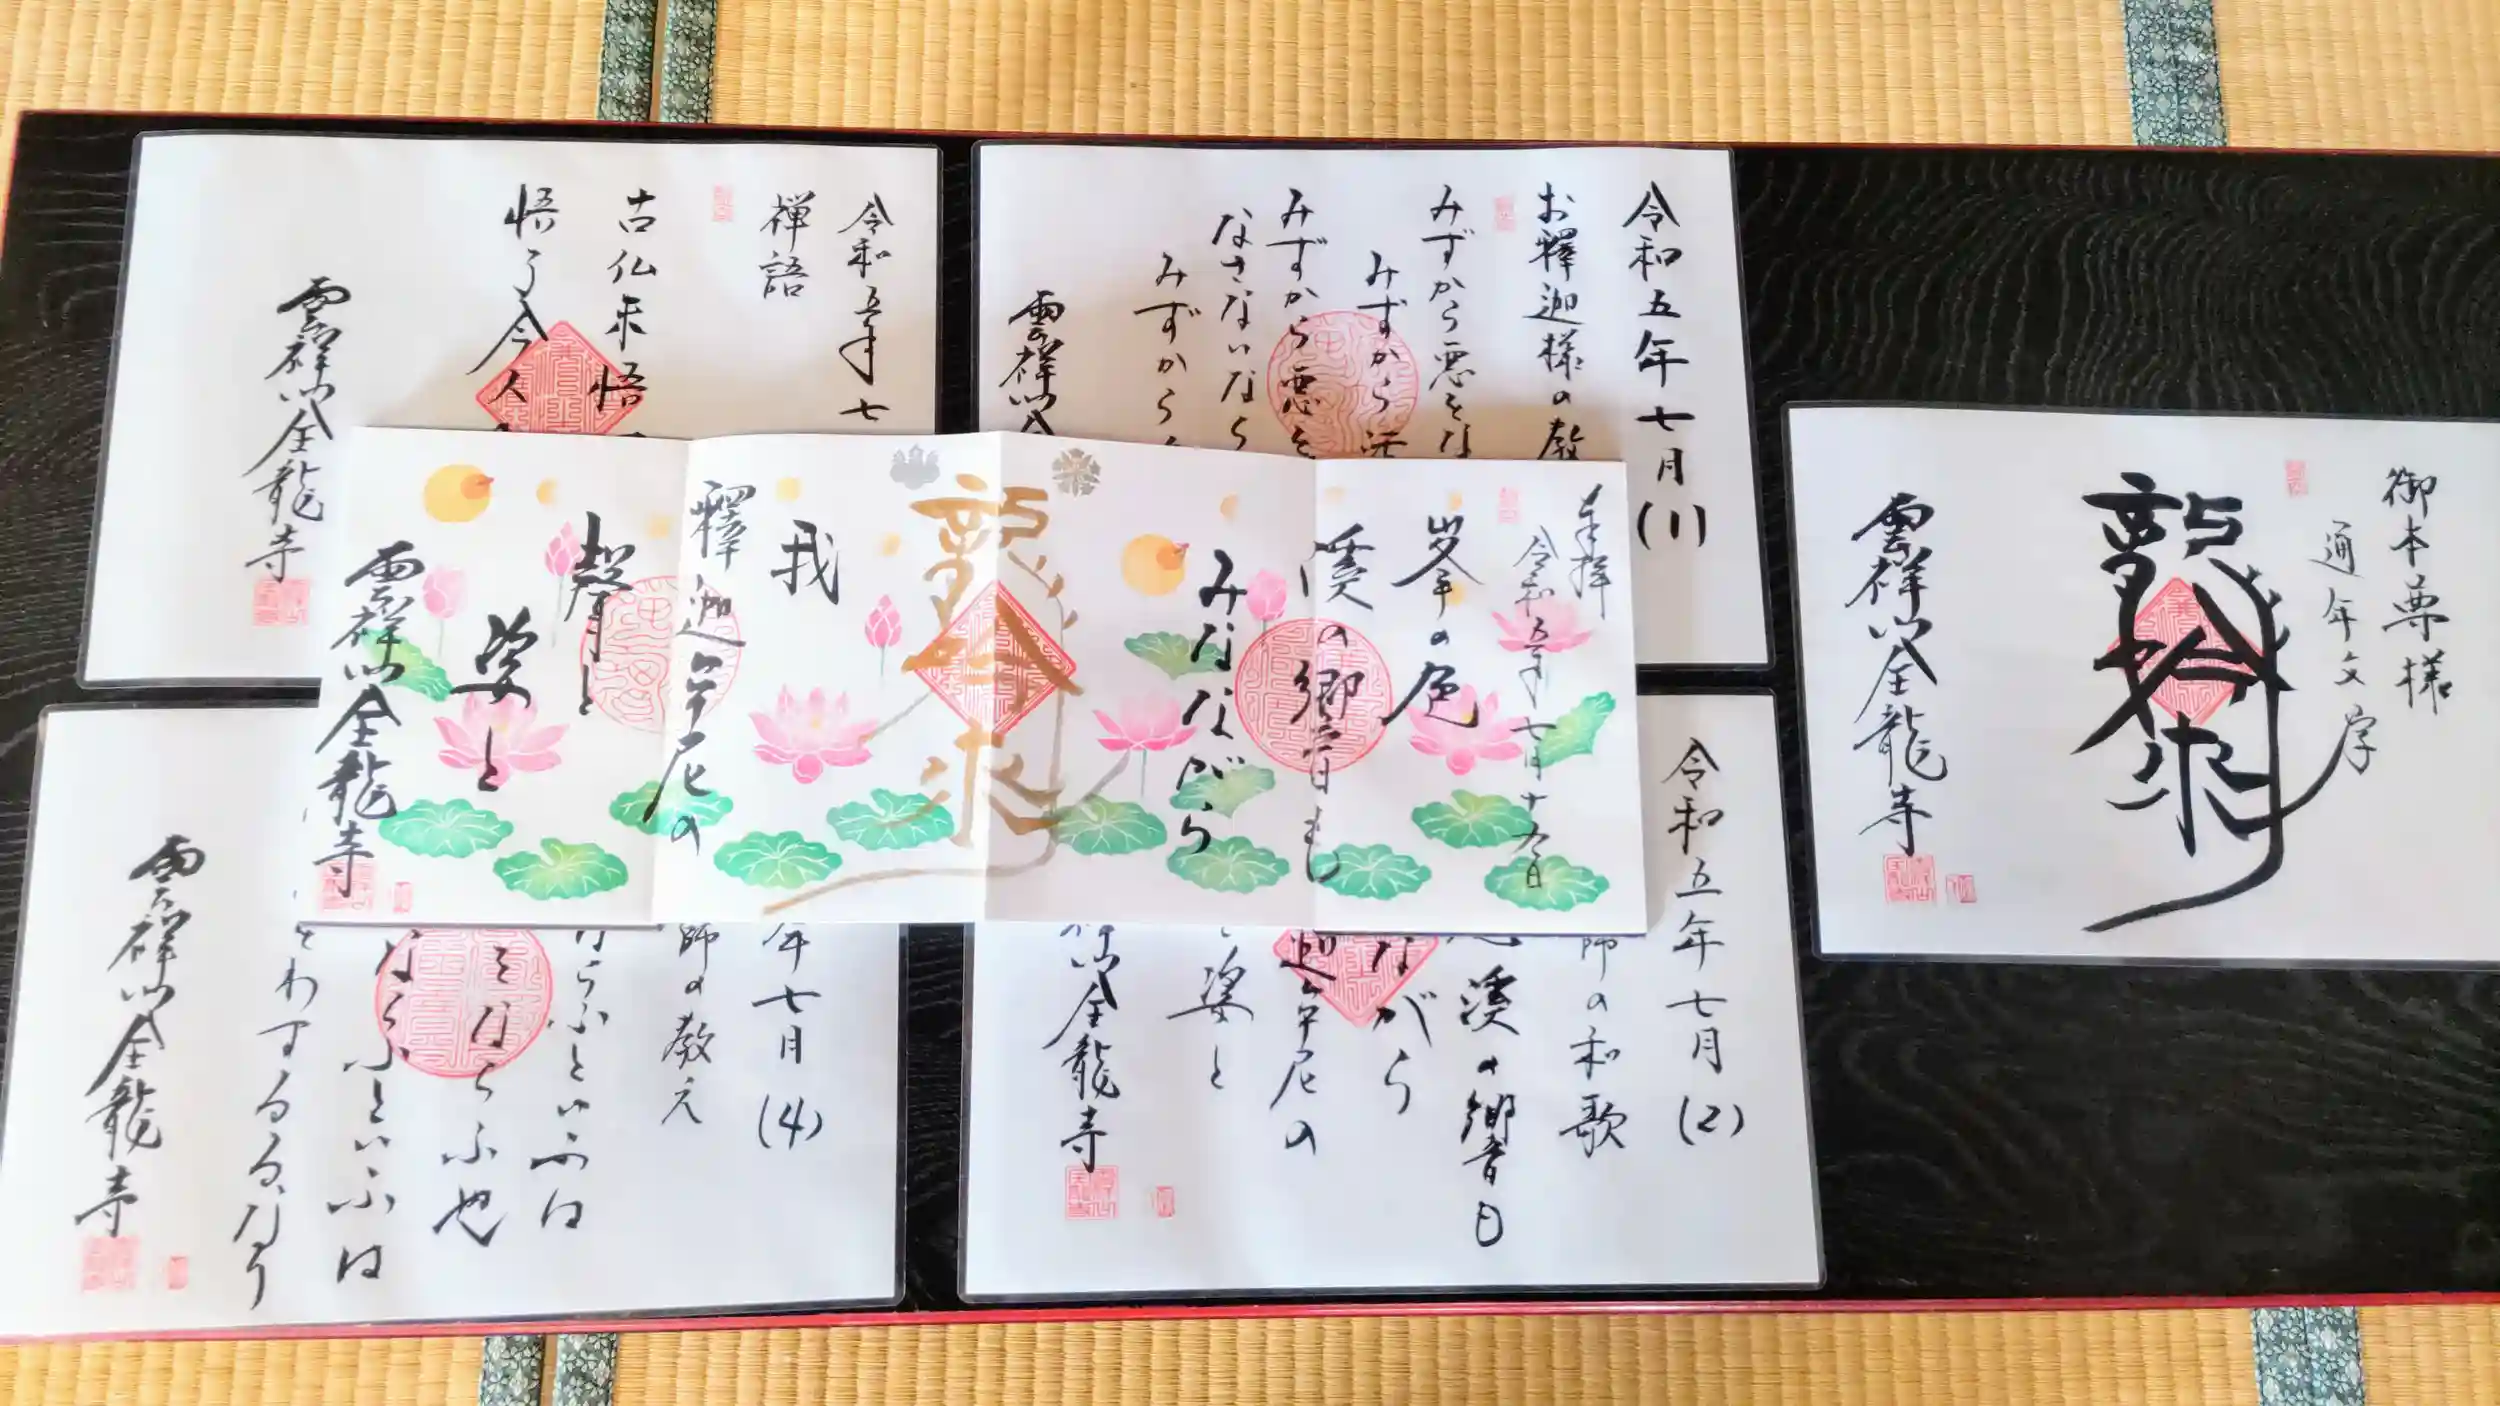 令和五年七月(1)
お釋迦様の教
みずから悪をな
みずから
みずから悪を
なさないなら
みずから
雲祥山金
令和五年七
禅語
古仏未悟
悟了今人
雲祥山金龍寺
奉拝
令和五年七月十九日
峯の色
溪の響も
みなながら
我
釋迦牟尼の
聲と
姿と
雲祥山金龍寺
御本尊様
通年文字
雲祥山金龍寺
令和五年七月(2)
師の和歌
溪の響も
ながら
迦牟尼の
姿と
山金龍寺
年七月(4)
師の教え
ならふといふは
をならふ也
ならふといふは
をわするるなり
雲祥山金龍寺